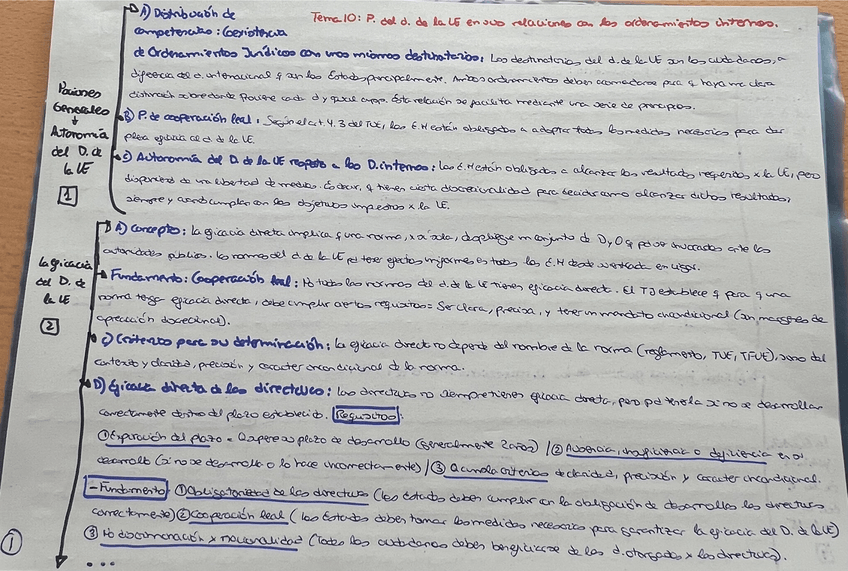 Tema 10: P. del d. de la UE en sus relaciones con los ordenamientos internos.
A) Distribución de
competencias: Coexistencia
de Ordenamientos Jurídicos con unos mismos destinatarios: Los destinatarios del d. de la UE son los ciudadanos, a
diferencia del d. internacional q son los Estados principalmente. Ambos ordenamientos deben coordinarse para q haya una clara
distinción sobre donde proviene cada d y qué. Esta relación se facilita mediante una serie de principios.
B) P. de cooperación leal: Según el art. 4.3 del TUE, los E.M están obligados a adoptar todas las medidas necesarias para dar
plena eficacia al d. de la UE.
C) Autonomía del D. de la UE respecto a los D. internos: Los E.M están obligados a alcanzar los resultados requeridos x la UE, pero
disponiendo de una libertad de medios. Es decir, q tienen cierta discrecionalidad para decidir como alcanzar dichos resultados,
siempre y cuando cumplan con los objetivos impuestos x la UE.
Nociones
Generales
Autonomía
del D. de
la UE
1
A) Concepto: La eficacia directa implica q una norma, x sí sola, despliegue un conjunto de D y O q pueden ser invocados ante las
autoridades públicas. Las normas del d. de la UE pd tener efectos uniformes en todos los E.M desde su entrada en vigor.
Fundamento: Cooperación leal: No todas las normas del d. de la UE tienen eficacia directa. El TJ establece q para q una
norma tenga eficacia directa, debe cumplir ciertos requisitos = Ser clara, precisa, y tener un mandato incondicional (sin márgenes de
apreciación discrecional).
C) Criterios para su determinación: La eficacia directa no depende del nombre de la norma (reglamento, TUE, TFUE), sino del
contexto y claridad, precisión y carácter incondicional de la norma.
D) Eficacia directa de las directivas: Las directivas no siempre tienen eficacia directa, pero pd tenerla si no se desarrollan
correctamente dentro del plazo establecido. Requisitos:
① Expiración del plazo = Q expire su plazo de desarrollo (generalmente 2 años) / ② Ausencia, insuficiencia o deficiencia en su
desarrollo (si no se desarrolla o lo hace incorrectamente) / ③ Q cumpla criterios de claridad, precisión y carácter incondicional.
- Fundamento: ① Obligatoriedad de las directivas (los Estados deben cumplir con la obligación de desarrollar las directivas
correctamente) ② Cooperación leal (Los Estados deben tomar las medidas necesarias para garantizar la eficacia del D. de la UE)
③ No discriminación x nacionalidad (Todos los ciudadanos deben beneficiarse de los d. otorgados x las directivas).
La eficacia
del D. de
la UE
2
①
...